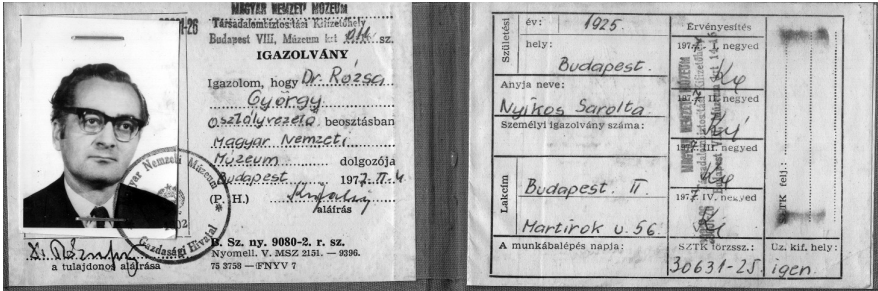 MAGYAR NEMZETI MÚZEUM
Társadalombiztosítási Kifizetőhely
Budapest VIII, Múzeum krt sz.
IGAZOLVÁNY
Igazolom, hogy Dr. Rózsa
György
osztályvezető beosztásban
Magyar Nemzeti
Múzeum dolgozója
Budapest 197
(P. H.)
aláírás
Magyar Nemzeti Múzeum
Gazdasági Hivatal
a tulajdonos aláírása
B. Sz. ny. 9080-2. r. sz.
Nyomell. V. MSZ 2151. — 9396.
75 3758 — FNYV 7
Születési
év: 1925.
hely:
Budapest.
Anyja neve:
Nyikos Sarolta
Személyi igazolvány száma:
Lakcím
Budapest. II.
Martirok u. 56.
A munkábalépés napja:
Érvényesítés
197 I. negyed
197 II. negyed
197 III. negyed
197 IV. negyed
MAGYAR NEMZETI MÚZEUM
SZTK törzssz.:
30631-25.
SZTK felj.:
Üz. kif. hely:
igen.